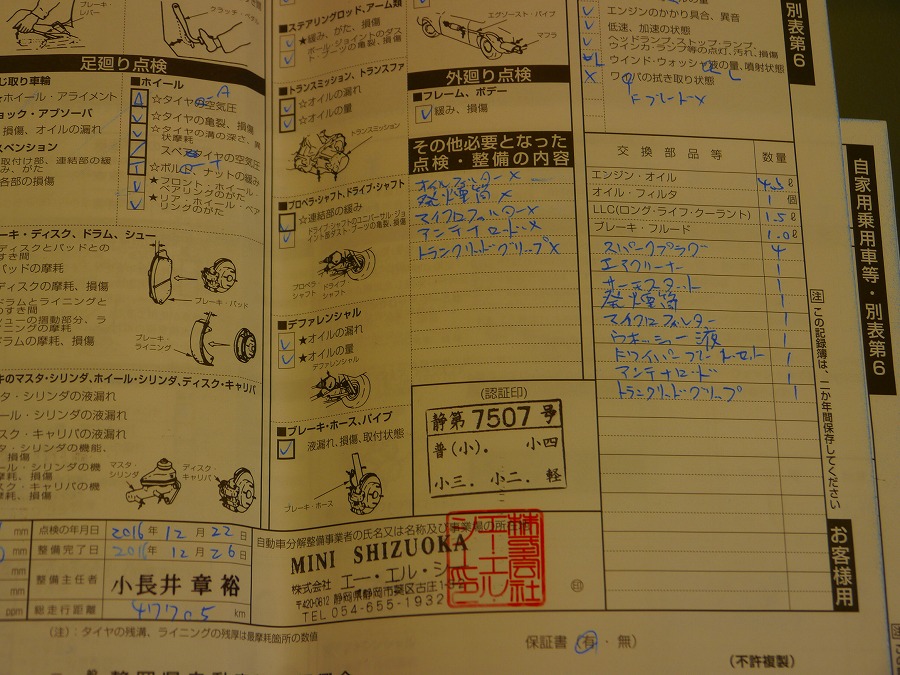 ブレーキ・レバー
クラッチ・ペダル
足廻り点検
じ取り車輪
☆ホイール・アライメント
ョック・アブソーバ
損傷、オイルの漏れ
スペンション
取付け部、連結部の緩み、がた
各部の損傷
■ホイール
☆タイヤの空気圧
☆タイヤの亀裂、損傷
☆タイヤの溝の深さ、異状摩耗
スペアタイヤの空気圧
☆ボルト、ナットの緩み
★フロント・ホイール・ベアリングのがた
★リア・ホイール・ベアリングのがた
ーキ・ディスク、ドラム、シュー
ディスクとパッドとのすき間
パッドの摩耗
ディスクの摩耗、損傷
ドラムとライニングとのすき間
シューの摺動部分、ライニングの摩耗
ドラムの摩耗、損傷
ブレーキ・パッド
ブレーキ・ライニング
キのマスタ・シリンダ、ホイール・シリンダ、ディスク・キャリパ
タ・シリンダの液漏れ
ール・シリンダの液漏れ
スク・キャリパの液漏れ
タ・シリンダの機能、摩耗、損傷
ール・シリンダの機摩耗、損傷
スク・キャリパの機摩耗、損傷
マスタ・シリンダ
ディスク・キャリパ
■ステアリングロッド、アーム類
★緩み、がた、損傷
ボール・ジョイントのダスト・ブーツの亀裂、損傷
■トランスミッション、トランスファ
☆オイルの漏れ
☆オイルの量
トランスミッション
■プロペラ・シャフト、ドライブ・シャフト
☆連結部の緩み
ドライブ・シャフトのユニバーサル・ジョイント部ダスト・ブーツの亀裂、損傷
プロペラ・シャフト
ドライブ・シャフト
■デファレンシャル
★オイルの漏れ
★オイルの量
デファレンシャル
■ブレーキ・ホース、パイプ
液漏れ、損傷、取付状態
ブレーキ・ホース
エグゾースト・パイプ
マフラ
外廻り点検
■フレーム、ボデー
緩み、損傷
その他必要となった点検・整備の内容
オイルフィルター×
発煙筒×
マイクロフィルター×
アンテナロッド×
トランクリッドグリップ×
(認証印)
静第7507号
普(小). 小四
小三. 小二. 軽
エンジンのかかり具合、異音
低速、加速の状態
ヘッドランプ、ストップ・ランプ、ウインカ・ランプ等の点灯、汚れ、損傷
ウインド・ウォッシャ液の量、噴射状態
ワイパの拭き取り状態
Fブレード×
別表第6
交換部品等 数量
エンジン・オイル 4.5 ℓ
オイル・フィルタ 1 個
LLC(ロング・ライフ・クーラント) 1.5 ℓ
ブレーキ・フルード 1.0 ℓ
スパークプラグ 4
エアクリーナー 1
サーモスタット 1
発煙筒 1
マイクロフィルター 1
ウォッシャー液 1
Fワイパーブレードセット 1
アンテナロッド 1
トランクリッド・グリップ 1
自家用乗用車等・別表第6
注 この記録簿は、二か年間保存してください
お客様用
点検の年月日 2016年 12月 22日
整備完了日 2016年 12月 26日
整備主任者 小長井章裕
総走行距離 41770.5 km
mm
mm
mm
mm
ppm
自動車分解整備事業者の氏名又は名称及び事業場の所在地
MINI SHIZUOKA
株式会社 エー・エル・シー
〒420-0812 静岡県静岡市葵区古庄1-
TEL 054-655-1932
印
(注):タイヤの残溝、ライニングの残厚は最摩耗箇所の数値
保証書(有・無)
(不許複製)